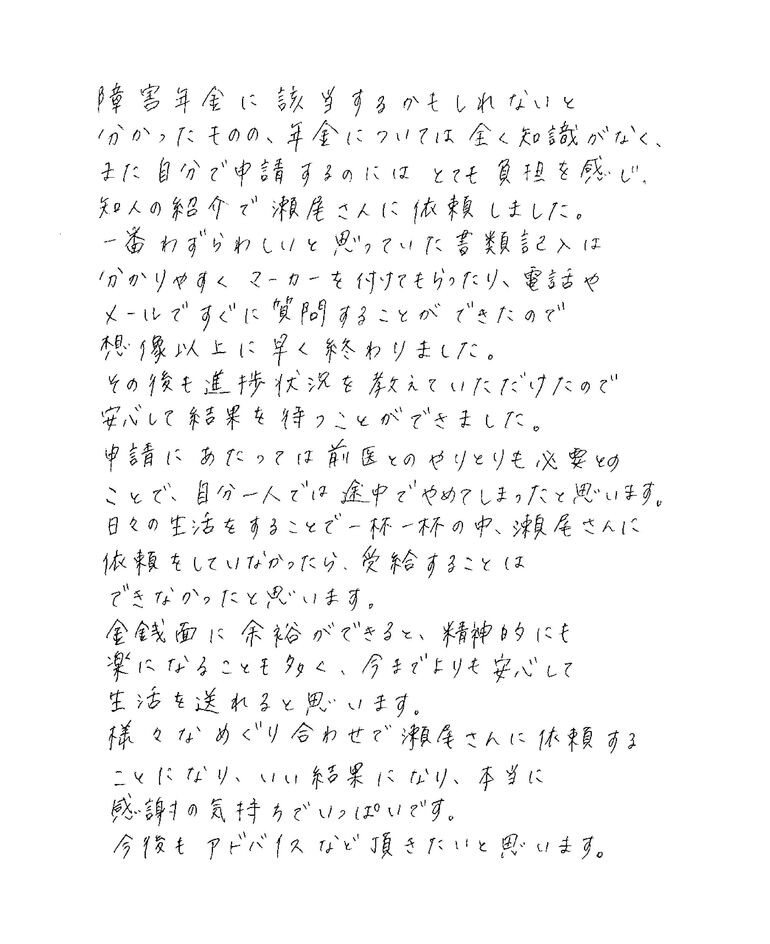 障害年金に該当するかもしれないと
分かったものの、年金については全く知識がなく、
また自分で申請するのにはとても負担を感じ、
知人の紹介で瀬尾さんに依頼しました。
一番わずらわしいと思っていた書類記入は
分かりやすくマーカーを付けてもらったり、電話や
メールですぐに質問することができたので
想像以上に早く終わりました。
その後も進捗状況を教えていただけたので
安心して結果を待つことができました。
申請にあたっては前医とのやりとりも必要との
ことで、自分一人では途中でやめてしまったと思います。
日々の生活をすることで一杯一杯の中、瀬尾さんに
依頼をしていなかったら、受給することは
できなかったと思います。
金銭面に余裕ができると、精神的にも
楽になることも多く、今までよりも安心して
生活を送れると思います。
様々なめぐり合わせで瀬尾さんに依頼する
ことになり、いい結果になり、本当に
感謝の気持ちでいっぱいです。
今後もアドバイスなど頂きたいと思います。